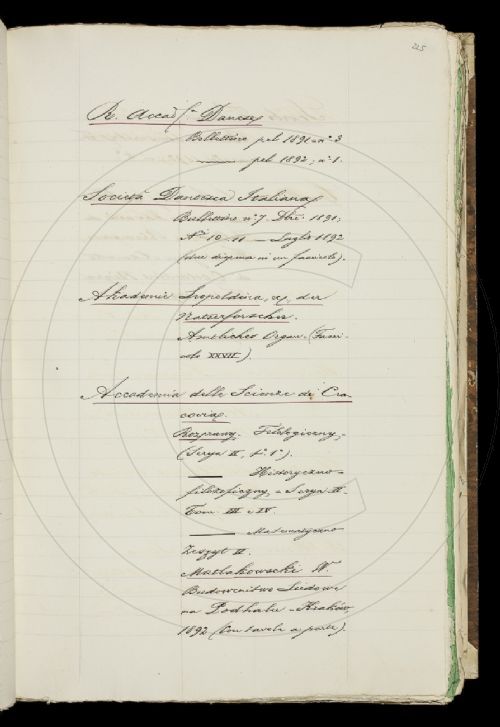 225
R. Accad.ª Danese
Bollettino pel 1891 = n.º 3
——— pel 1892, n.º 1.
Società Dantesca Italiana
Bullettino n.º 7. Dbre 1891;
N.ri 10-11 — Luglio 1892
(due copie in un fascicolo).
Akademie Leopoldina, der
Naturforscher.
Amtliches Organ. (Fasci-
colo XXVII).
Accademia delle Scienze di Cra-
covia.
Rozprawy. Filologiczny,
(Serya II, t.º 1º).
——— Historyczno-
filozoficzny, = Serya II.
Tom. III e IV.
——— Matematyczno
Zeszyt II.
Matlakowski W.
Budownictwo Ludowe
na Podhalu - Kraków
1892 (Con tavole a parte).